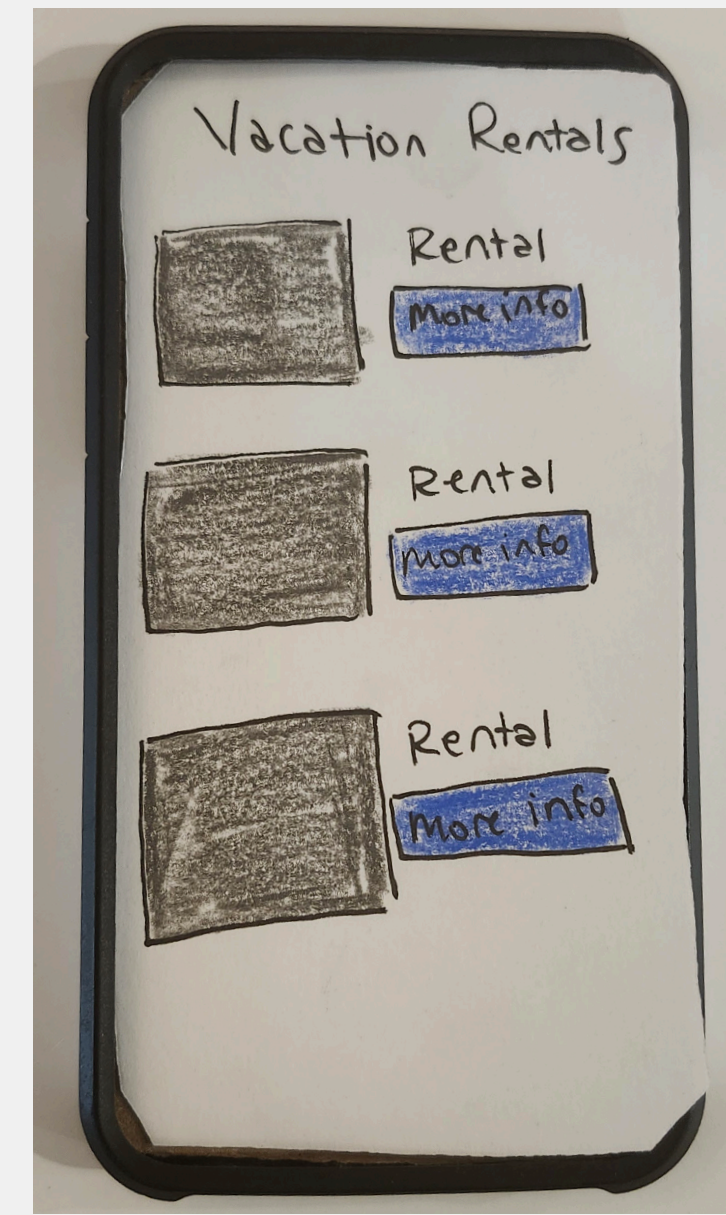 Vacation Rentals
Rental
More info
Rental
more info
Rental
More info